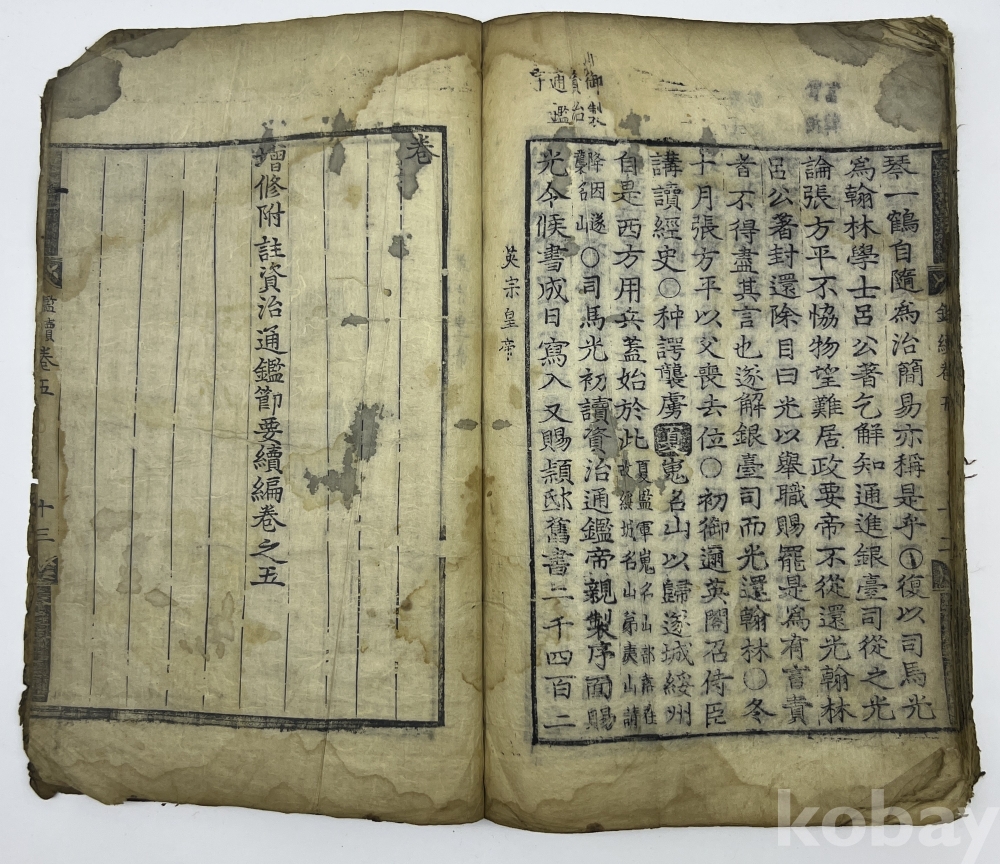 御製
資治
通鑑
序
琴一鶴自隨爲治簡易亦稱是乎○復以司馬光
爲翰林學士呂公著乞解知通進銀臺司從之光
論張方平不恊物望難居政要帝不從還光翰林
呂公著封還除目曰光以舉職賜罷是爲有言責
者不得盡其言也遂解銀臺司而光還翰林○冬
十月張方平以父喪去位○初御邇英閣召侍臣
講讀經史○种諤襲虜嵬名山以歸遂城綏州
自是西方用兵蓋始於此夏監軍嵬名山部落在
故綏城名山弟夷山請
降因遂
襲名山○司馬光初讀資治通鑑帝親製序面賜
光令候書成日寫入又賜潁邸舊書二千四百二
英宗皇帝
卷
增修附註資治通鑑節要續編卷之五
鑑續卷五
十三
kobay